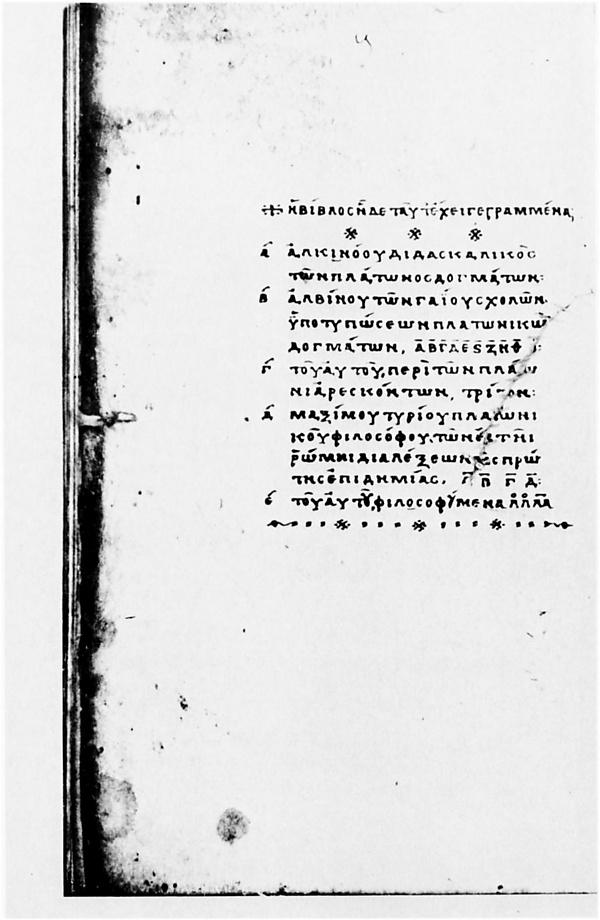 Ἡ ΒΊΒΛΟΣ ἭΔΕ ΤΑΥ͂Τ' ἜΧΕΙ ΓΕΓΡΑΜΜΈΝΑ
Α ἈΛΚΙΝΌΟΥ ΔΙΔΑΣΚΑΛΙΚῸΣ
ΤΩ͂Ν ΠΛΆΤΩΝΟΣ ΔΟΓΜΆΤΩΝ:
Β ἈΛΒΊΝΟΥ ΤΩ͂Ν ΓΑΪ́ΟΥ ΣΧΟΛΩ͂Ν
ὙΠΟΤΥΠΏΣΕΩΝ ΠΛΑΤΩΝΙΚΩ͂
ΔΟΓΜΆΤΩΝ, Α̅ Β̅ Γ̅ Δ̅ Ε̅ Ϛ̅ Ζ̅ Η̅ Θ̅ :
Γ ΤΟΥ͂ ΑΥ̓ΤΟΥ͂, ΠΕΡῚ ΤΩ͂Ν ΠΛΆΤΩ
ΝΙ ἈΡΕΣΚΌΝΤΩΝ, ΤΡΊΤΟΝ:
Δ ΜΑΞΊΜΟΥ ΤΥΡΊΟΥ ΠΛΑΤΩΝΙ
ΚΟΥ͂ ΦΙΛΟΣΌΦΟΥ, ΤΩ͂Ν ἘΝ ΤΗ͂Ι
ῬΏΜΗΙ ΔΙΑΛΈΞΕΩΝ ΤΗ͂Σ ΠΡΏ
ΤΗΣ ἘΠΙΔΗΜΊΑΣ, Β̅ Γ̅ Δ̅:
Ε ΤΟΥ͂ ΑΥ̓ΤΟΥ͂, ΦΙΛΟΣΟΦΟΎΜΕΝΑ